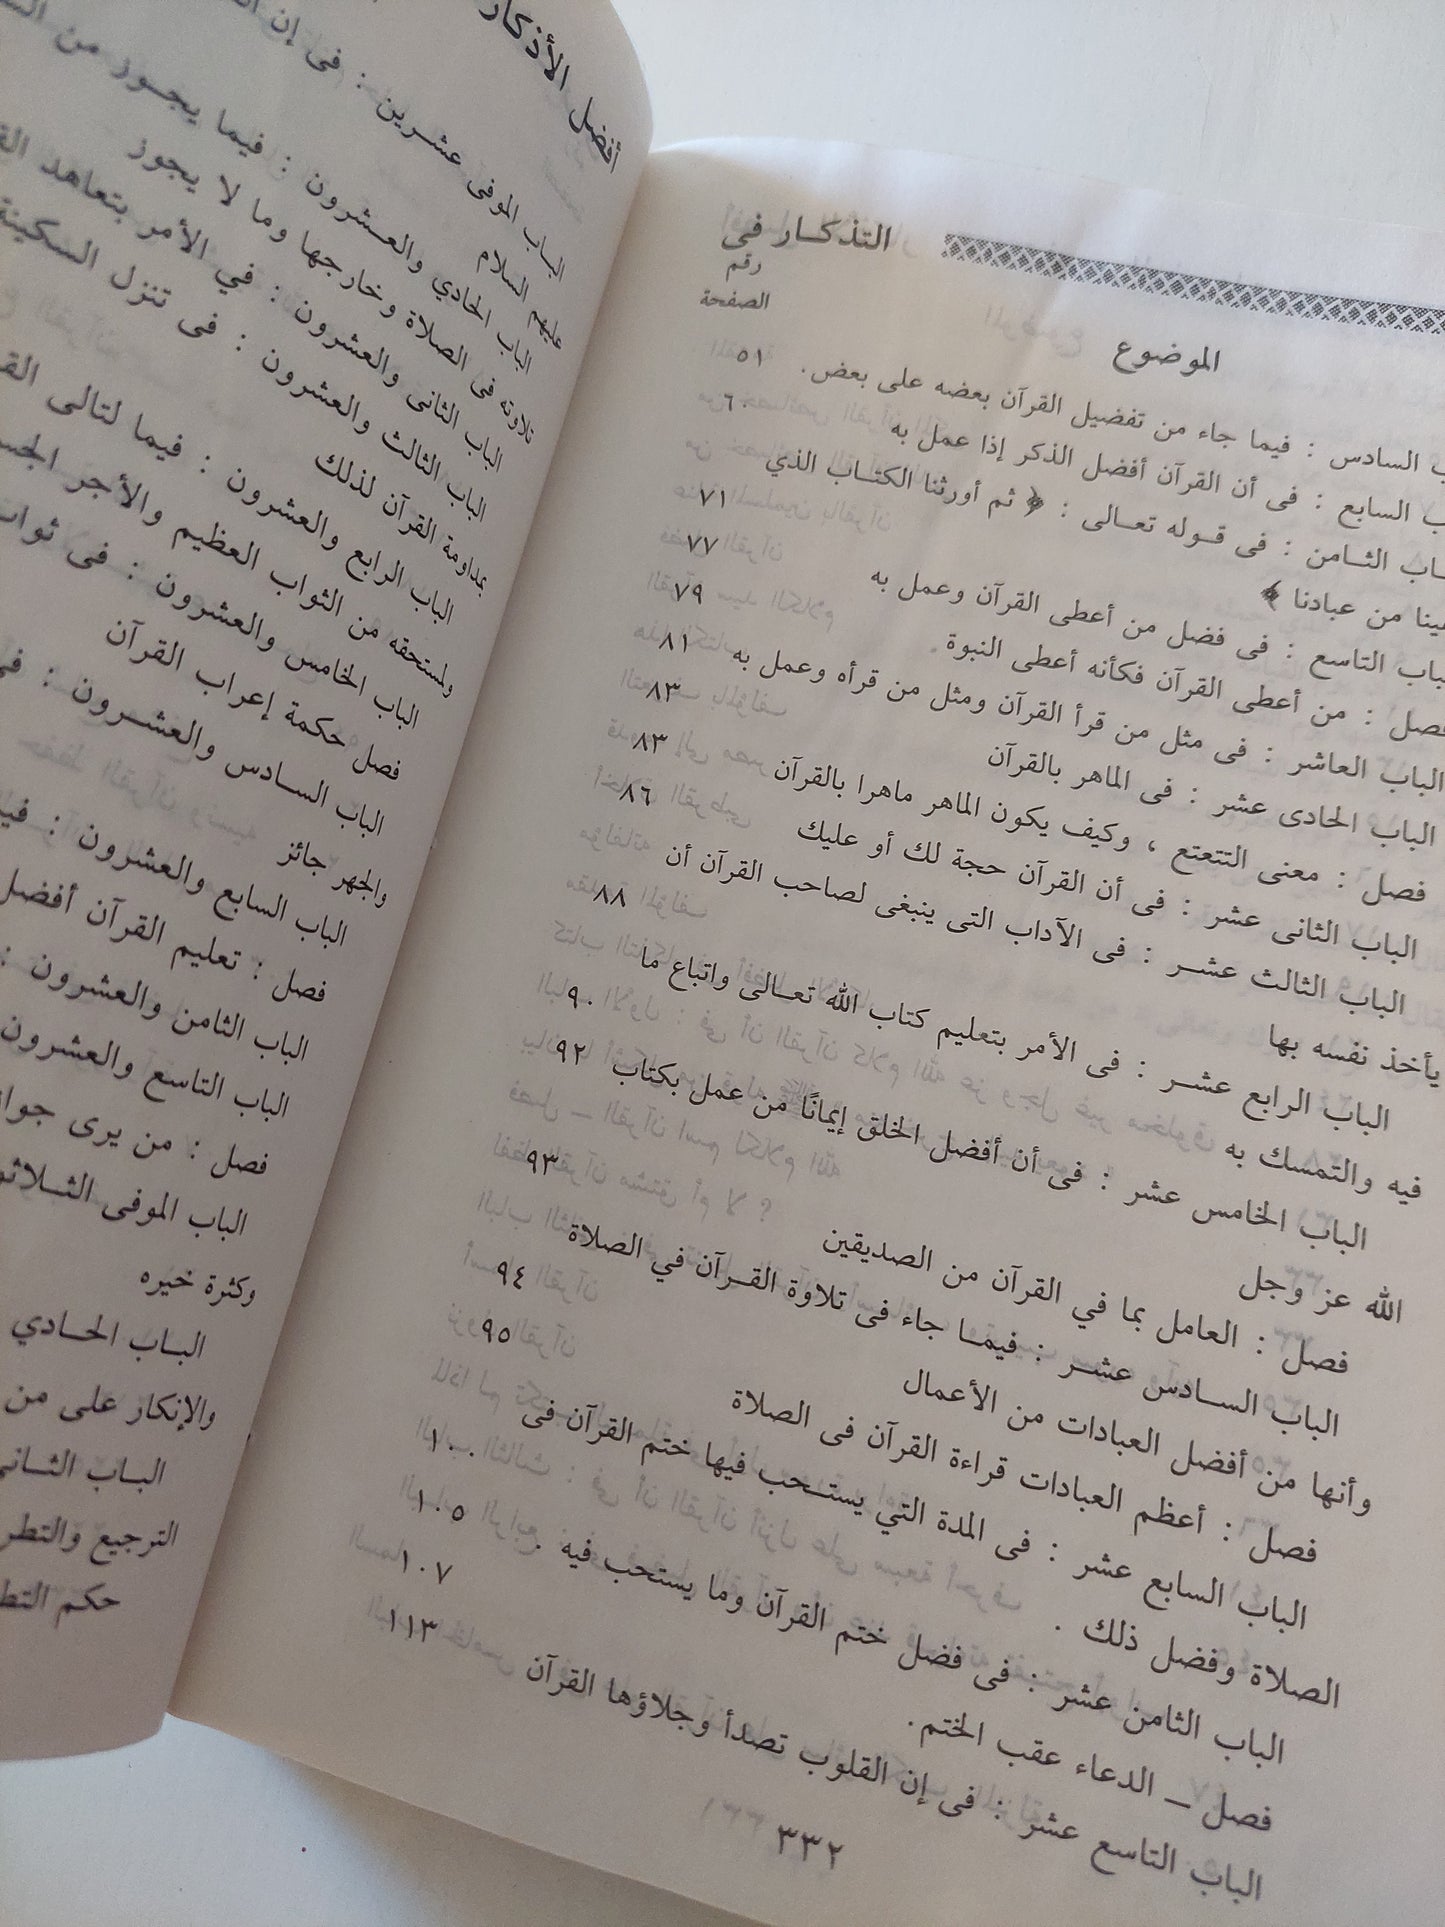 التذكار فى
رقم
الصفحة
الموضوع
السادس : فيما جاء من تفضيل القرآن بعضه على بعض. ٥١
السابع : فى أن القرآن أفضل الذكر إذا عمل به ٦٠
الثامن : فى قوله تعالى : ﴿ ثم أورثنا الكتاب الذي
من عبادنا ﴾ ٧١
التاسع : فى فضل من أعطى القرآن وعمل به ٧٧
فصل : من أعطى القرآن فكأنه أعطى النبوة . ٧٩
الباب العاشر : فى مثل من قرأ القرآن ومثل من قرأه وعمل به ٨١
الباب الحادى عشر : فى الماهر بالقرآن ٨٣
فصل : معنى التتعتع ، وكيف يكون الماهر ماهرا بالقرآن ٨٣
الباب الثانى عشر : فى أن القرآن حجة لك أو عليك ٨٦
الباب الثالث عشر : فى الآداب التى ينبغى لصاحب القرآن أن
يأخذ نفسه بها ٨٨
الباب الرابع عشر : فى الأمر بتعليم كتاب الله تعالى واتباع ما
فيه والتمسك به ٩٠
الباب الخامس عشر : فى أن أفضل الخلق إيمانًا من عمل بكتاب
الله عز وجل ٩٢
فصل : العامل بما في القرآن من الصديقين ٩٣
الباب السادس عشر : فيما جاء فى تلاوة القرآن في الصلاة
وأنها من أفضل العبادات من الأعمال ٩٤
فصل : أعظم العبادات قراءة القرآن فى الصلاة ٩٥
الباب السابع عشر : فى المدة التي يستحب فيها ختم القرآن فى
الصلاة وفضل ذلك . ١٠٠
الباب الثامن عشر : فى فضل ختم القرآن وما يستحب فيه . ١٠٥
فصل – الدعاء عقب الختم. ١٠٧
الباب التاسع عشر : فى إن القلوب تصدأ وجلاؤها القرآن ١١٣
٣٣٢
أفضل الأذكار
الباب الموفى عشرين : فى إن
عليهم السلام
الباب الحادي والعشرون : فيما يجوز من
تلاوته فى الصلاة وخارجها وما لا يجوز
الباب الثانى والعشرون : في الأمر بتعاهد
الباب الثالث والعشرون : فى تنزل السكينة
بمداومة القرآن لذلك
الباب الرابع والعشرون : فيما لتالى
ولمستحقه من الثواب العظيم والأجر
الباب الخامس والعشرون : فى ثواب
فصل حكمة إعراب القرآن
الباب السادس والعشرون :
والجهر جائز
الباب السابع والعشرون :
فصل : تعليم القرآن أفضل
الباب الثامن والعشرون :
الباب التاسع والعشرون
فصل : من يرى
الباب الموفى
وكثرة خيره
الباب الحادي
والإنكار على من
الباب
الترجيع
حكم